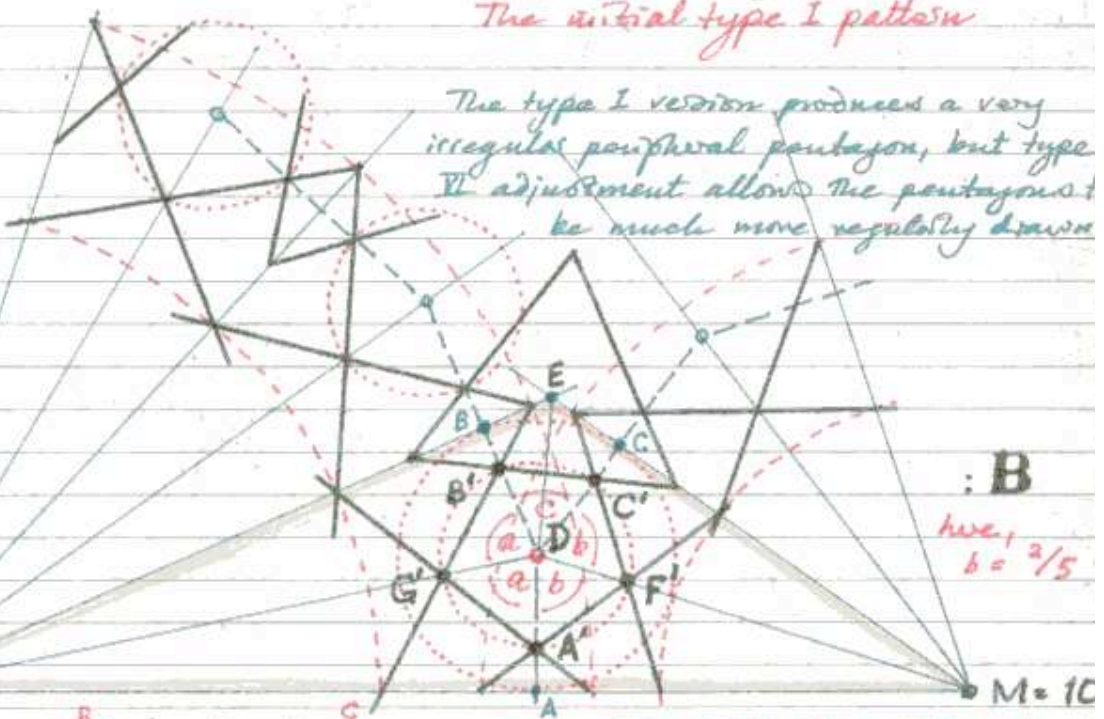 The initial type I pattern
The type I version produces a very
irregular peripheral pentagon, but type
VI adjustment allows the pentagons t
be much more regularly drawn
E
B
C
B'
C'
: B
C
D
a
b
here,
b = 2/5
a
b
G'
F'
A'
M = 10
B
C
A